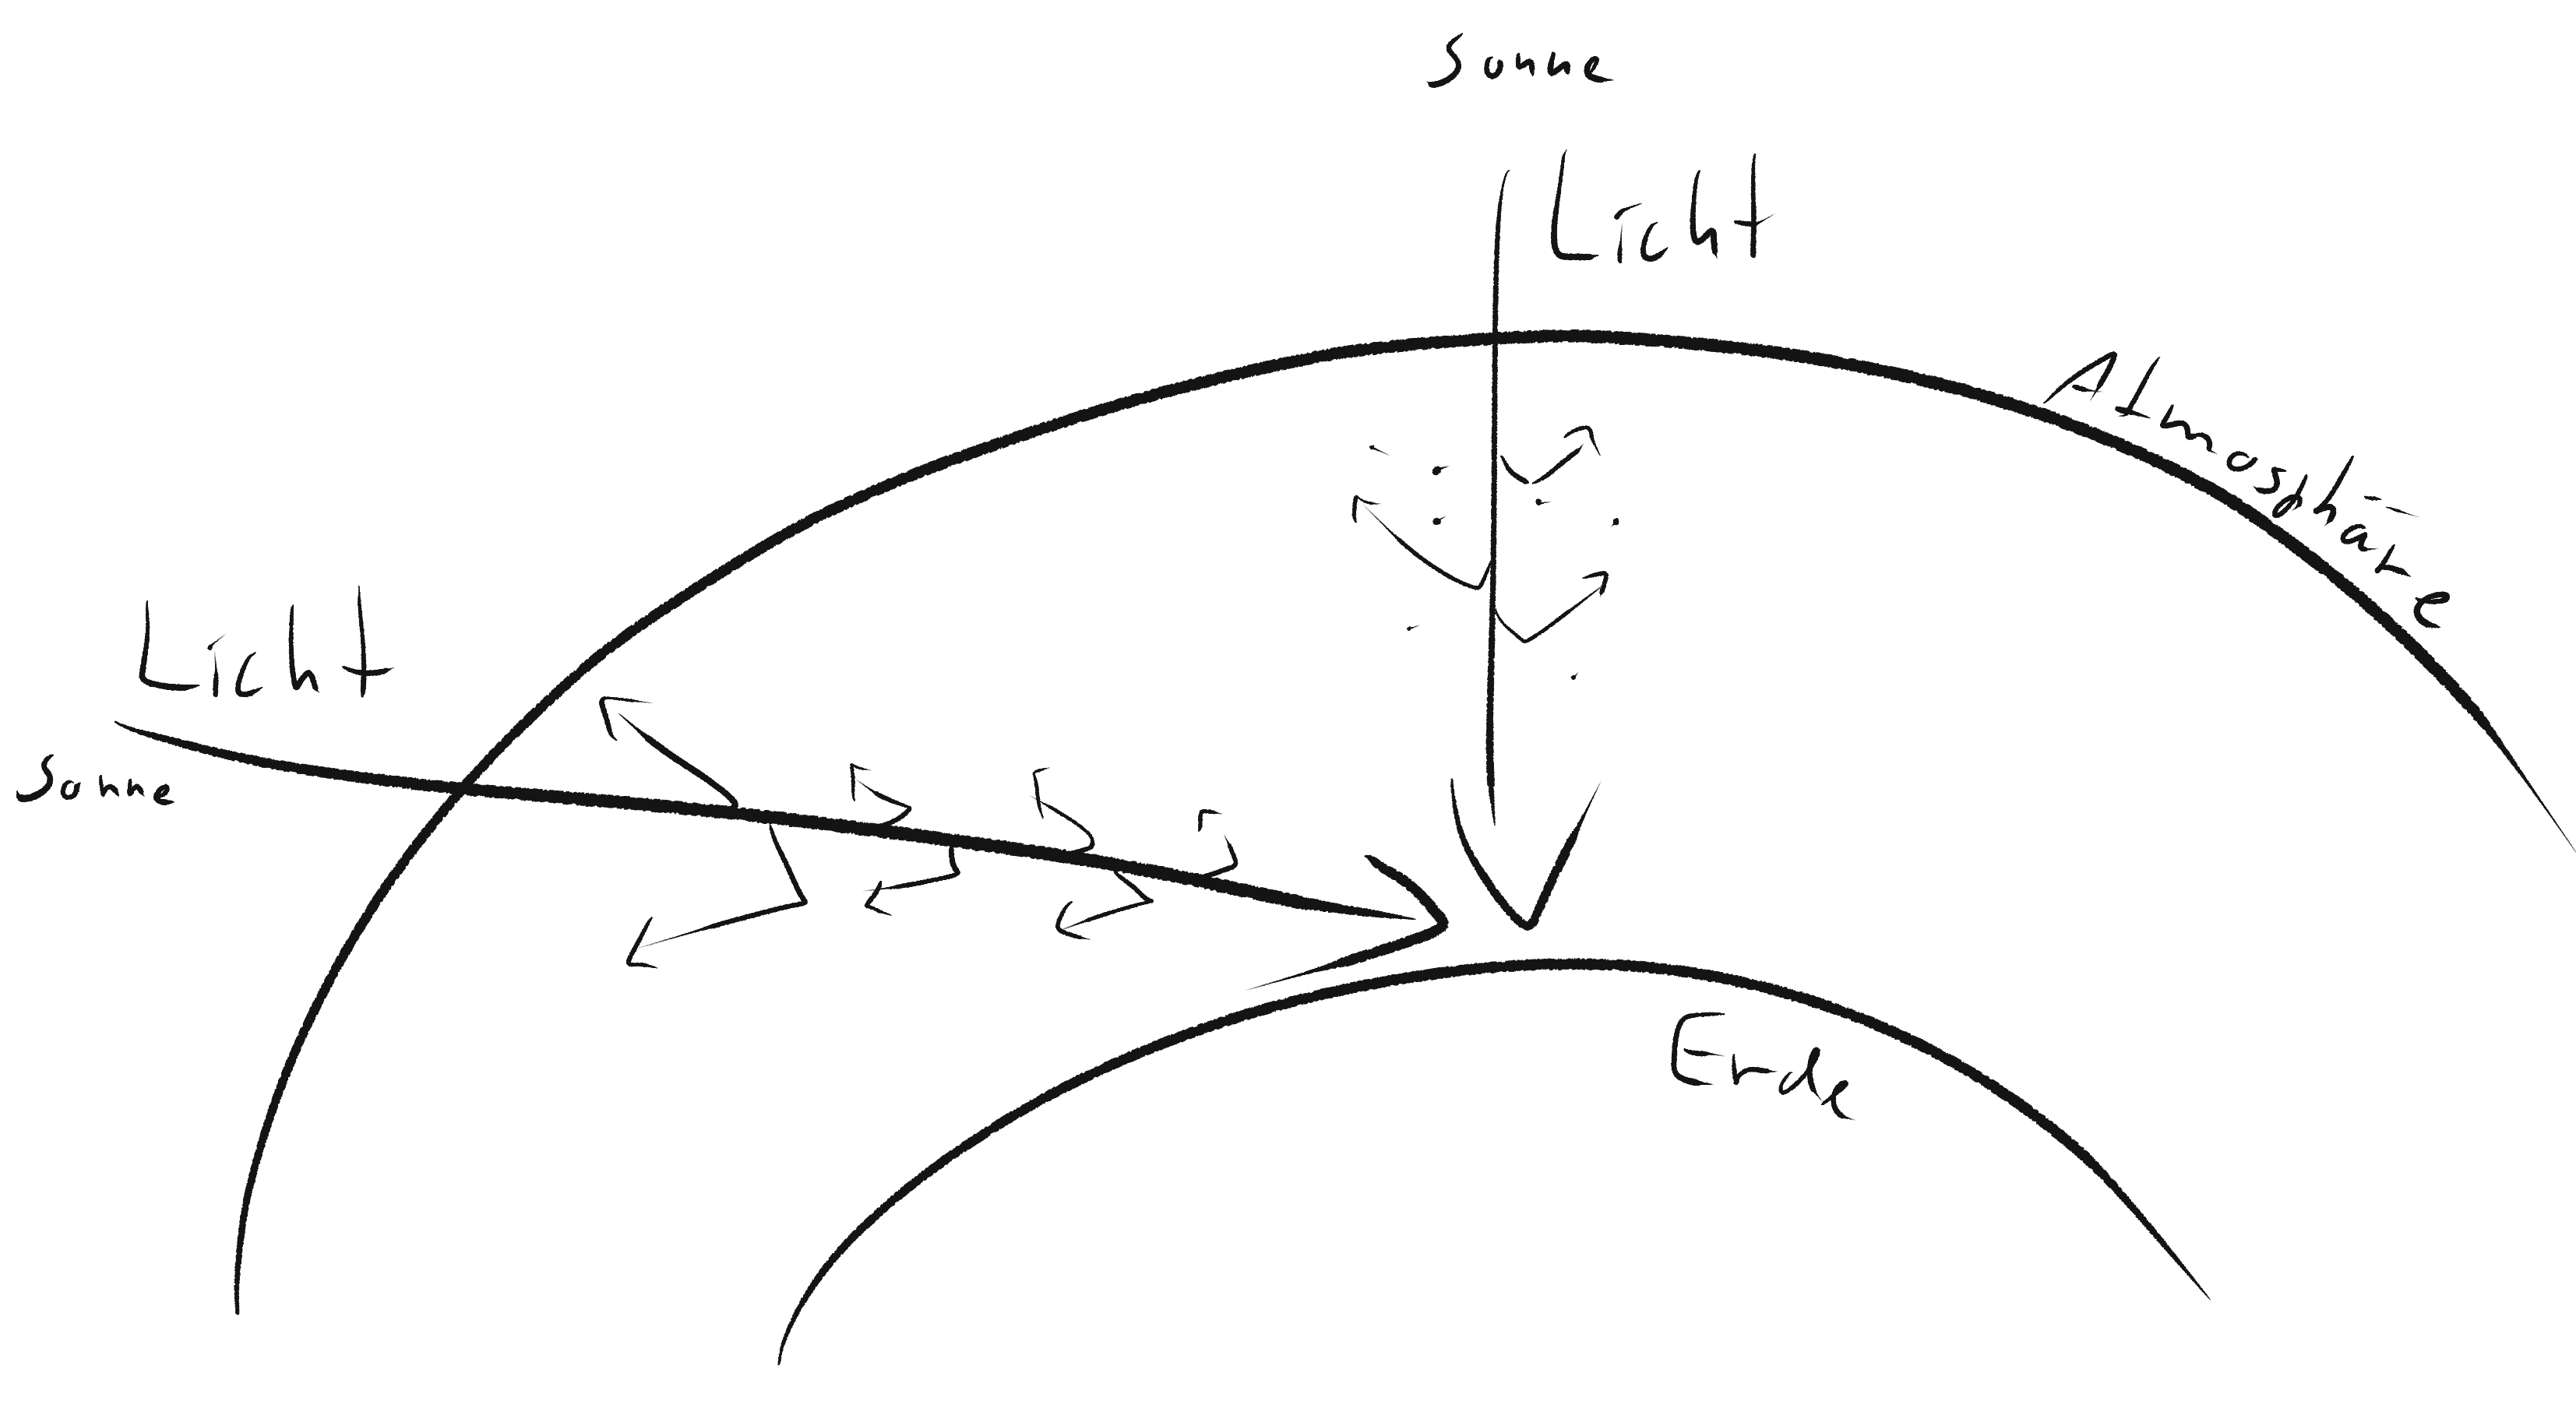 Sonne
Licht
Atmosphäre
Licht
Sonne
Erde